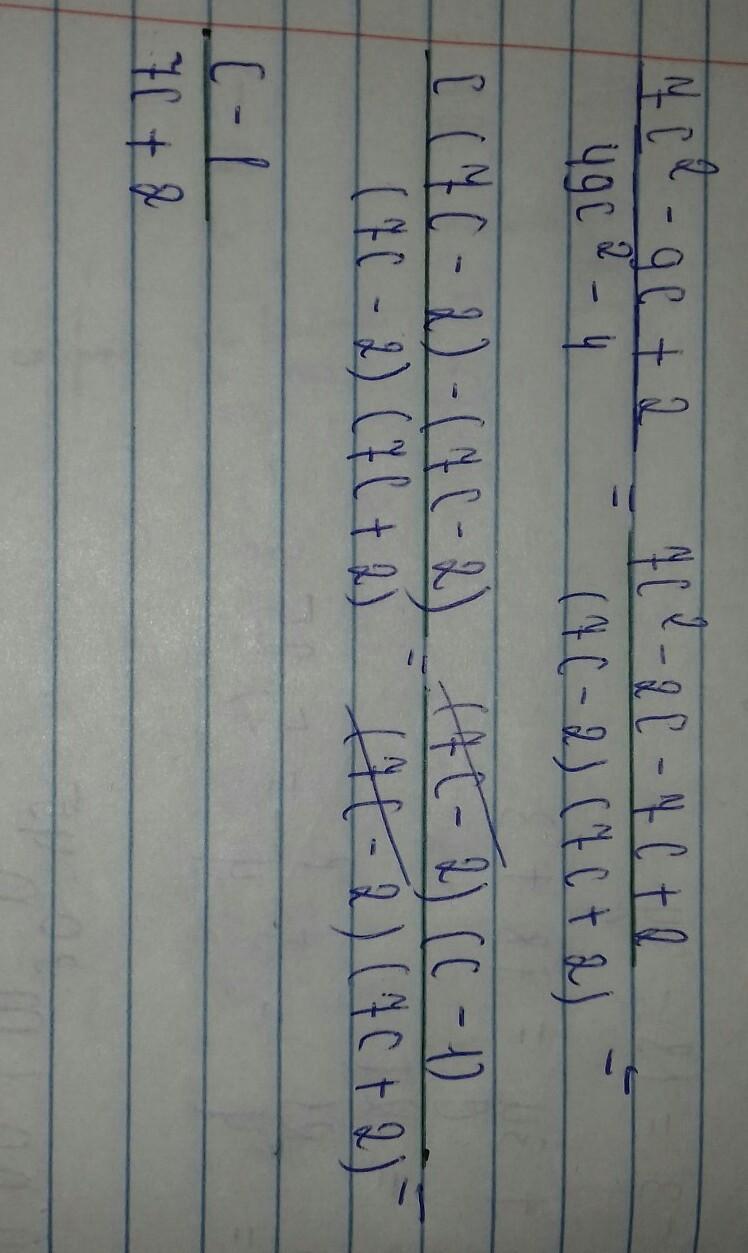 7c² - 9c + 2 / 49c² - 4 = 7c² - 2c - 7c + 2 / (7c - 2)(7c + 2) =
c(7c - 2) - (7c - 2) / (7c - 2)(7c + 2) = (7c - 2)(c - 1) / (7c - 2)(7c + 2) =
c - 1 / 7c + 2